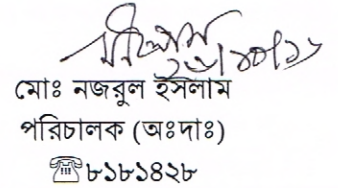 মোঃ নজরুল ইসলাম
পরিচালক (অঃদাঃ)
☎৮১৮১৪২৮